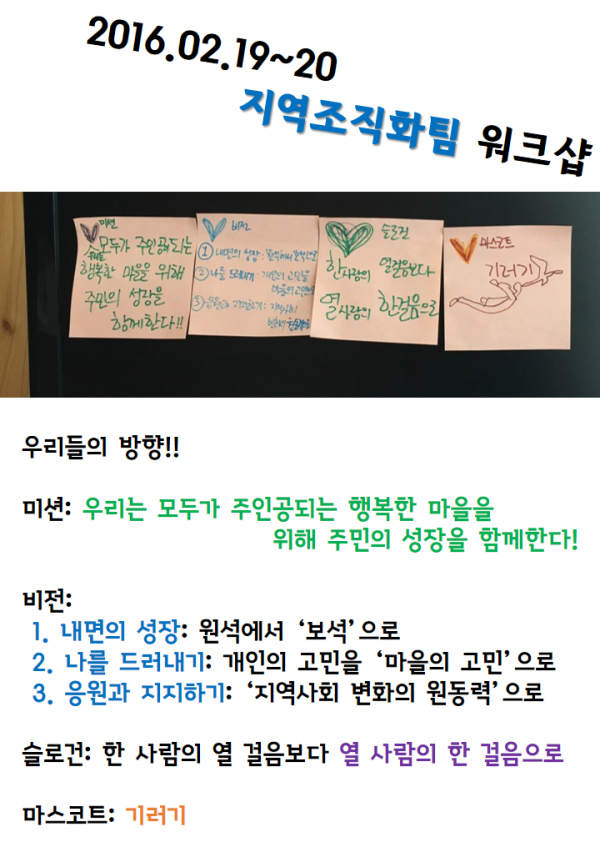 2016.02.19~20
지역조직화팀 워크샵
미션
우리는 모두가 주인공되는
행복한 마을을 위해
주민의 성장을
함께한다!!
비전
① 내면의 성장: 원석에서 보석으로
② 나를 드러내기: 개인의 고민을
마을의 고민으로
③ 응원과 지지하기: 지역사회
슬로건
한사람의 열걸음보다
열사람의 한걸음으로
마스코트
기러기
우리들의 방향!!
미션: 우리는 모두가 주인공되는 행복한 마을을
위해 주민의 성장을 함께한다!
비전:
1. 내면의 성장: 원석에서 ‘보석’으로
2. 나를 드러내기: 개인의 고민을 ‘마을의 고민’으로
3. 응원과 지지하기: ‘지역사회 변화의 원동력’으로
슬로건: 한 사람의 열 걸음보다 열 사람의 한 걸음으로
마스코트: 기러기